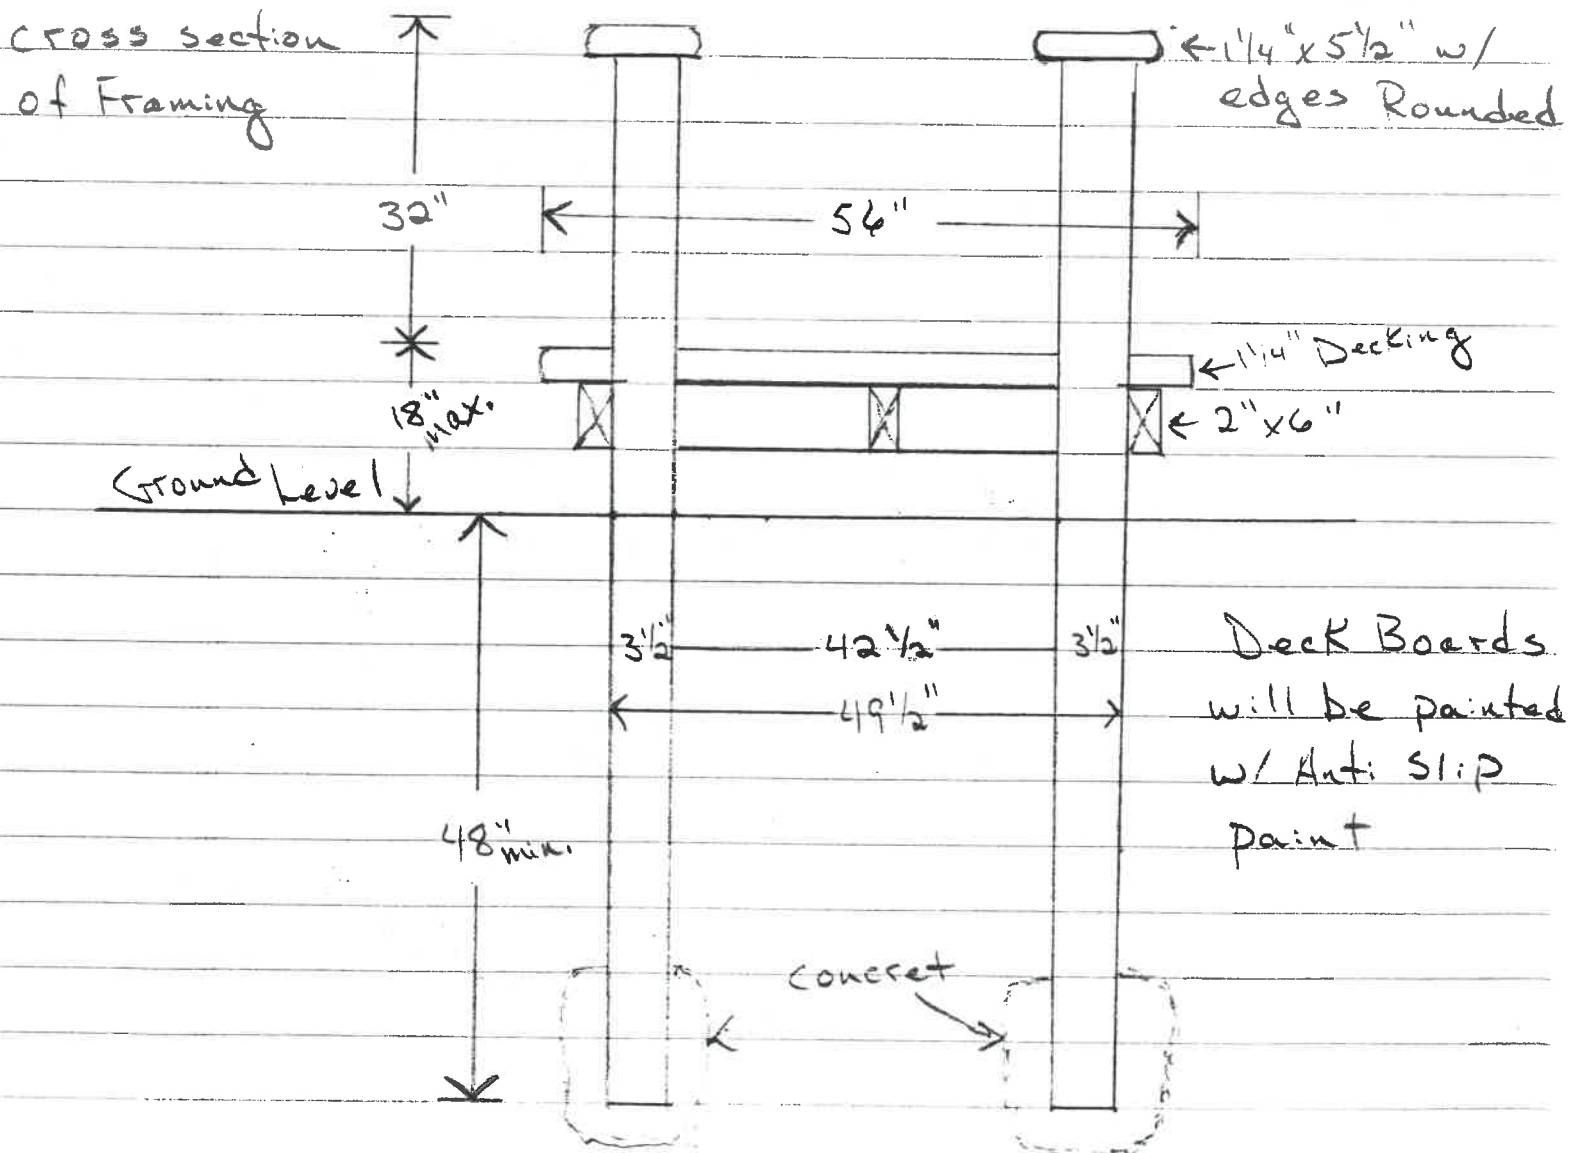 cross section
of Framing
← 1 1/4" x 5 1/2" w/
edges Rounded
32"
54"
← 1 1/4" Decking
18" max.
← 2" x 6"
Ground Level
3 1/2"
42 1/2"
3 1/2"
49 1/2"
Deck Boards
will be painted
w/ Anti Slip
paint
48" min.
concret